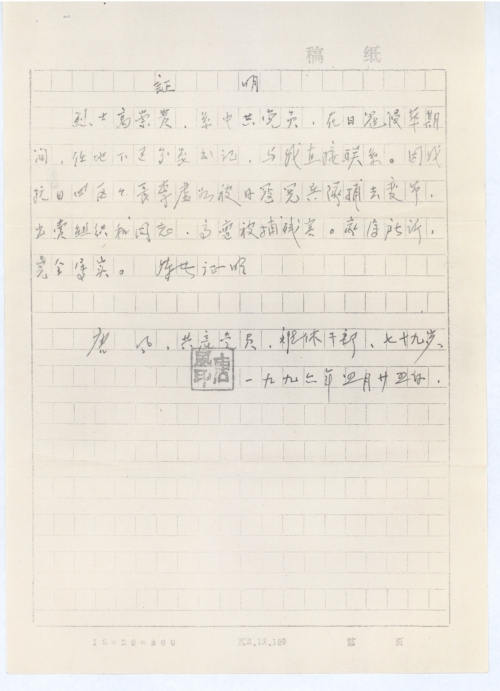 稿 纸
証 明
烈士高崇贵,系中共党员,在日寇侵华期
间,任地下区分委书记,与我直接联系。因我
抗日四区区长李 被日寇宪兵队捕去变节,
出卖组织和同志,高 被捕残害。 所诉,
完全属实。 特此证明
唐 风,共产党员,离休干部,七十九岁、
唐风印
一九九六年四月廿五日,
15×20=300
第 页